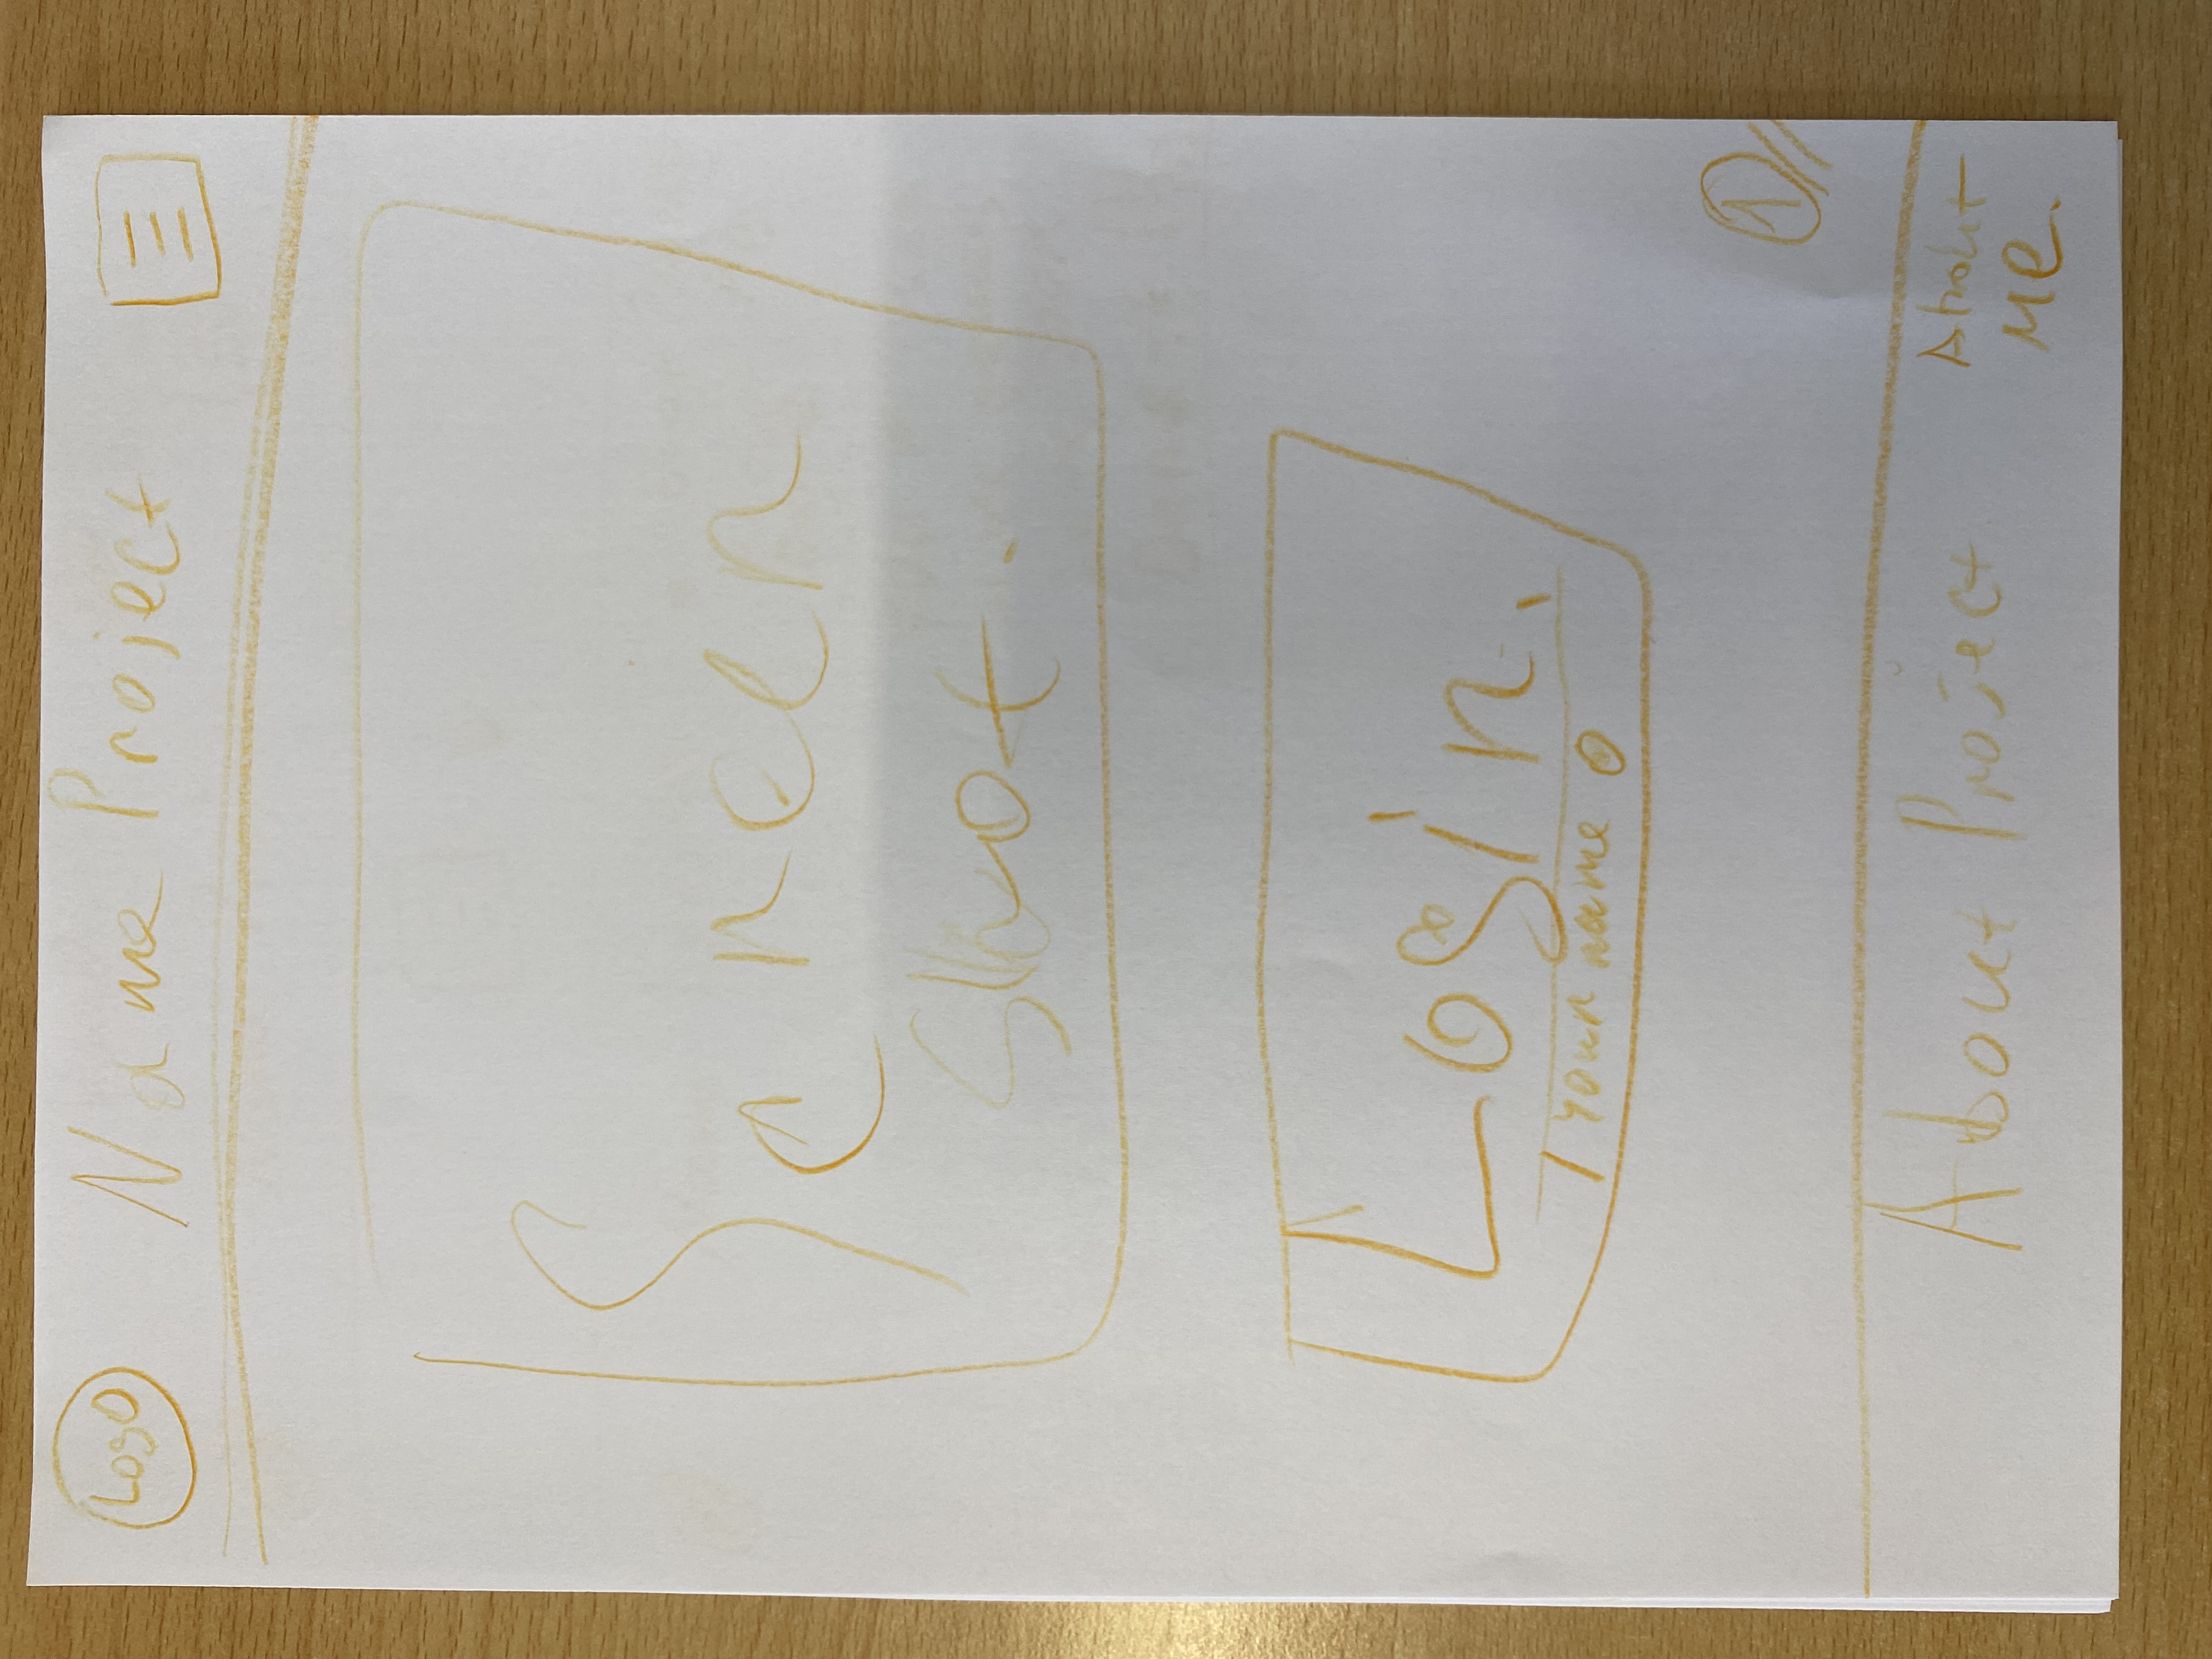 Logo Name Project
Screen
shot.
Login.
/ your name
1
About Project
About
Me.